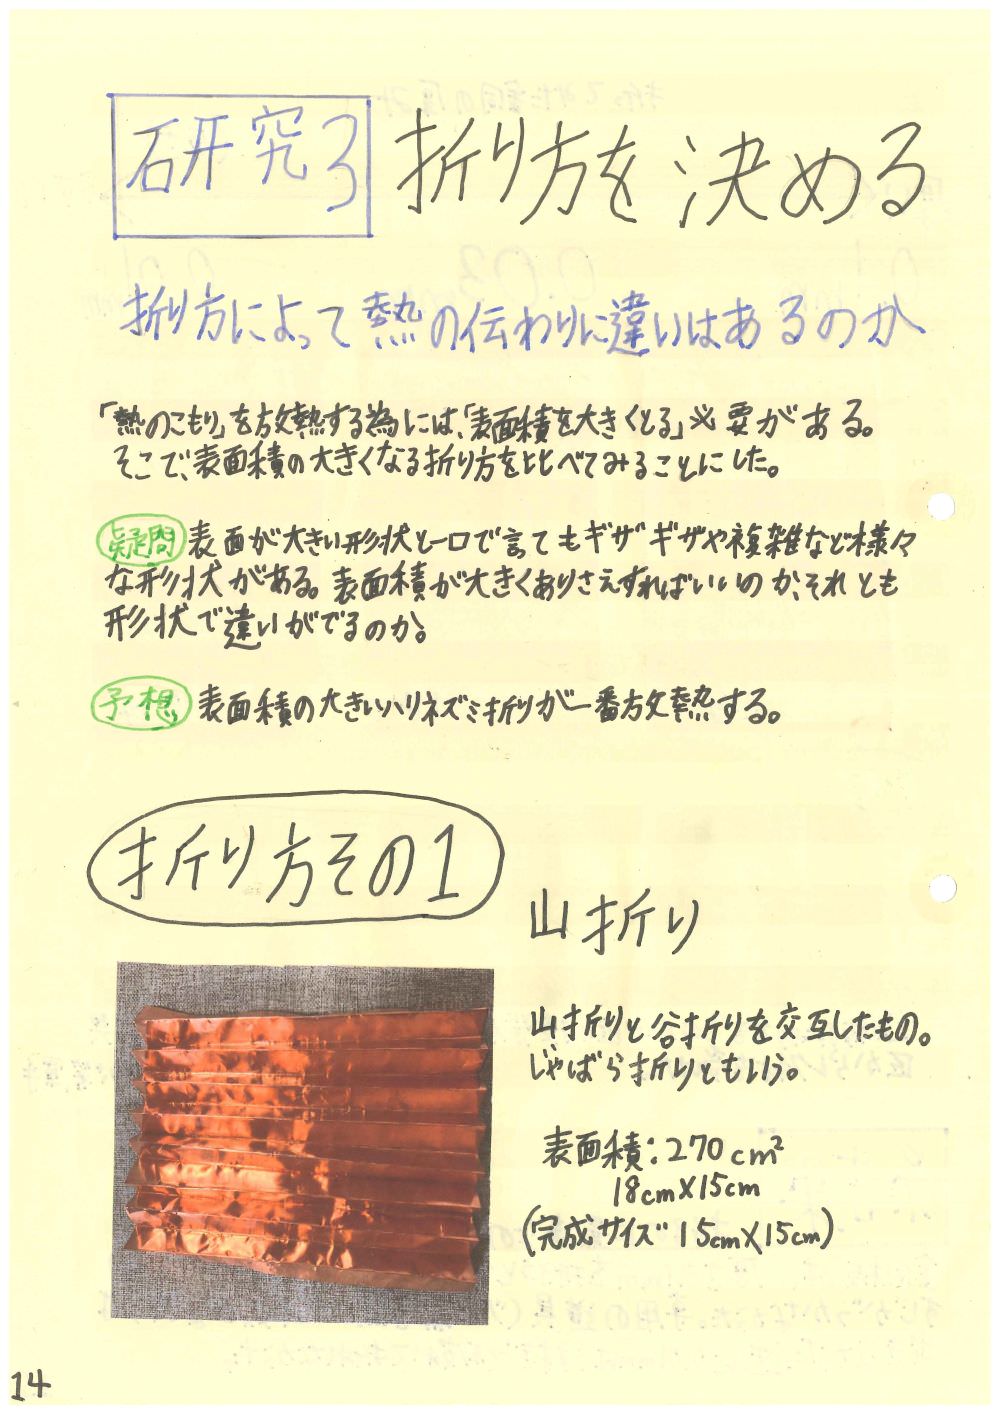 研究3 折り方を決める
折り方によって熱の伝わりに違いはあるのか
「熱のこもり」を放熱する為には、「表面積を大きくとる」必要がある。
そこで、表面積の大きくなる折り方を比べてみることにした。
疑問 表面が大きい形状と一口で言ってもギザギザや複雑など様々
な形状がある。表面積が大きくありさえすればいいのか、それとも
形状で違いがでるのか。
予想 表面積の大きいハリネズミ折りが一番放熱する。
折り方その1
山折り
山折りと谷折りを交互したもの。
じゃばら折りともいう。
表面積:270cm²
18cm×15cm
(完成サイズ 15cm×15cm)
14